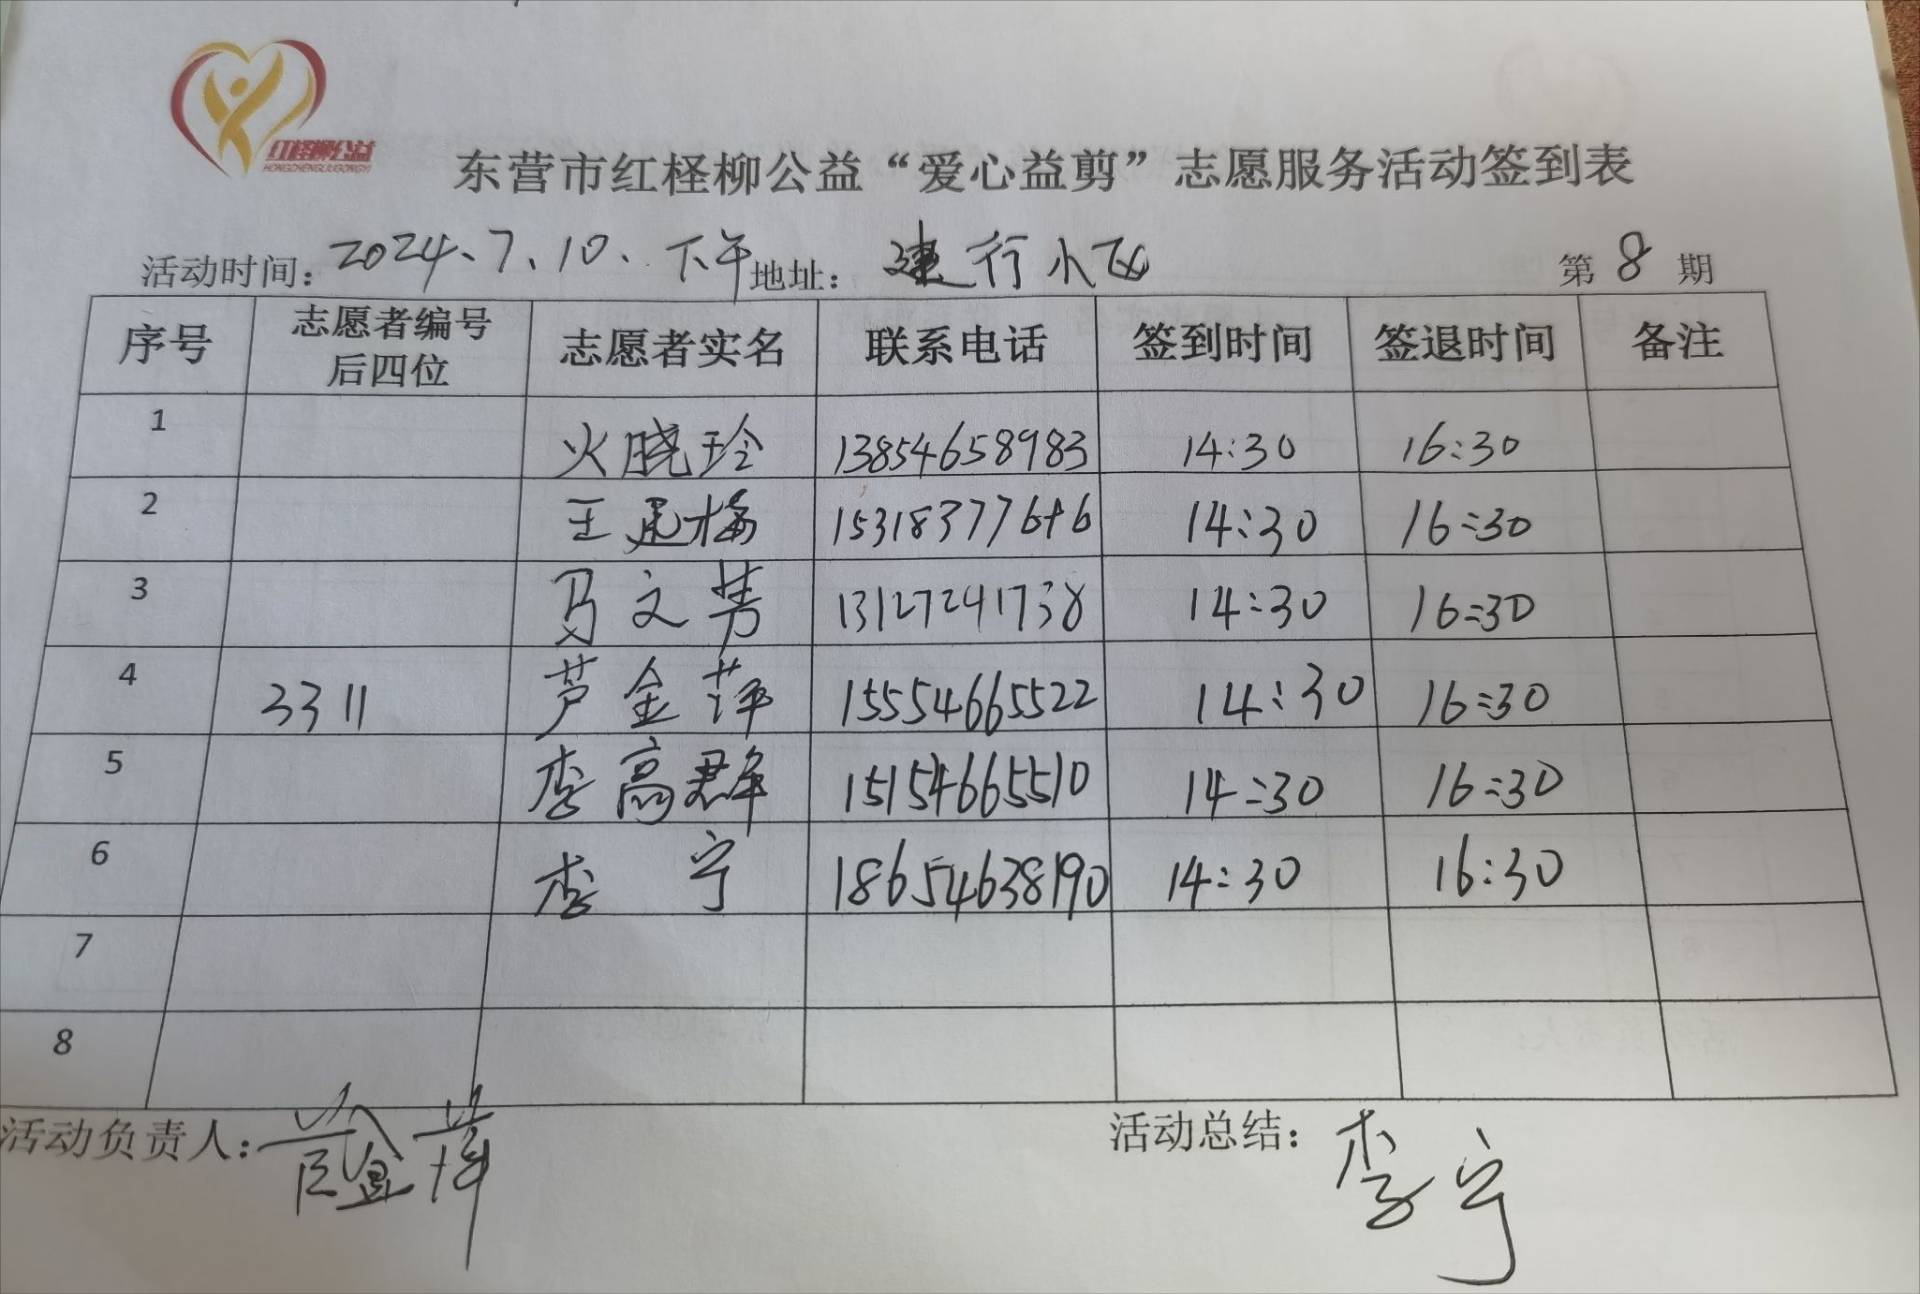 红柽柳公益
HONGCHENGLIUGONGYI
东营市红柽柳公益“爱心益剪”志愿服务活动签到表
活动时间：2024、7、10、下午 地址：建行小区 第 8 期
序号 志愿者编号后四位 志愿者实名 联系电话 签到时间 签退时间 备注
1 火晓玲 13854658983 14:30 16:30
2 王建梅 153183776 14:30 16:30
3 马文 13127241738 14:30 16:30
4 3311 芦金萍 15554665522 14:30 16:30
5 李高群 15154665510 14:30 16:30
6 李宁 18654638190 14:30 16:30
7
8
活动负责人： 活动总结：李宁